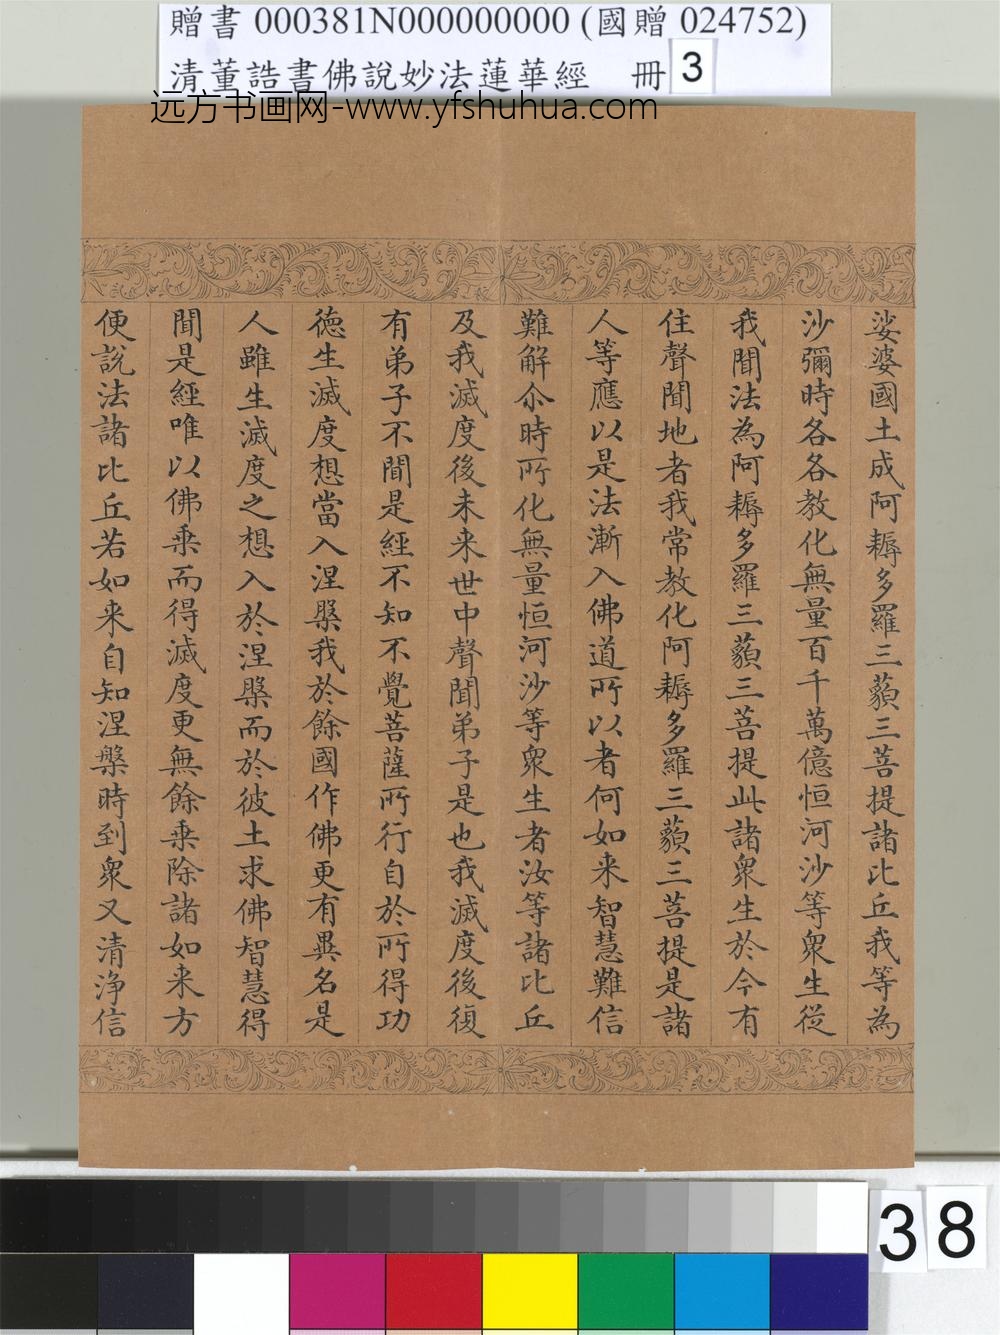 贈書 000381N000000000 (國贈 024752)
清董誥書佛說妙法蓮華經 冊 3
远方书画网-www.yfshuhua.com
娑婆國土成阿耨多羅三藐三菩提諸比丘我等為
沙彌時各各教化無量百千萬億恒河沙等衆生從
我聞法為阿耨多羅三藐三菩提此諸衆生於今有
住聲聞地者我常教化阿耨多羅三藐三菩提是諸
人等應以是法漸入佛道所以者何如来智慧難信
難解尒時所化無量恒河沙等衆生者汝等諸比丘
及我滅度後未来世中聲聞弟子是也我滅度後復
有弟子不聞是經不知不覺菩薩所行自於所得功
德生滅度想當入涅槃我於餘國作佛更有異名是
人雖生滅度之想入於涅槃而於彼土求佛智慧得
聞是經唯以佛乗而得滅度更無餘乗除諸如来方
便說法諸比丘若如来自知涅槃時到衆又清淨信
38